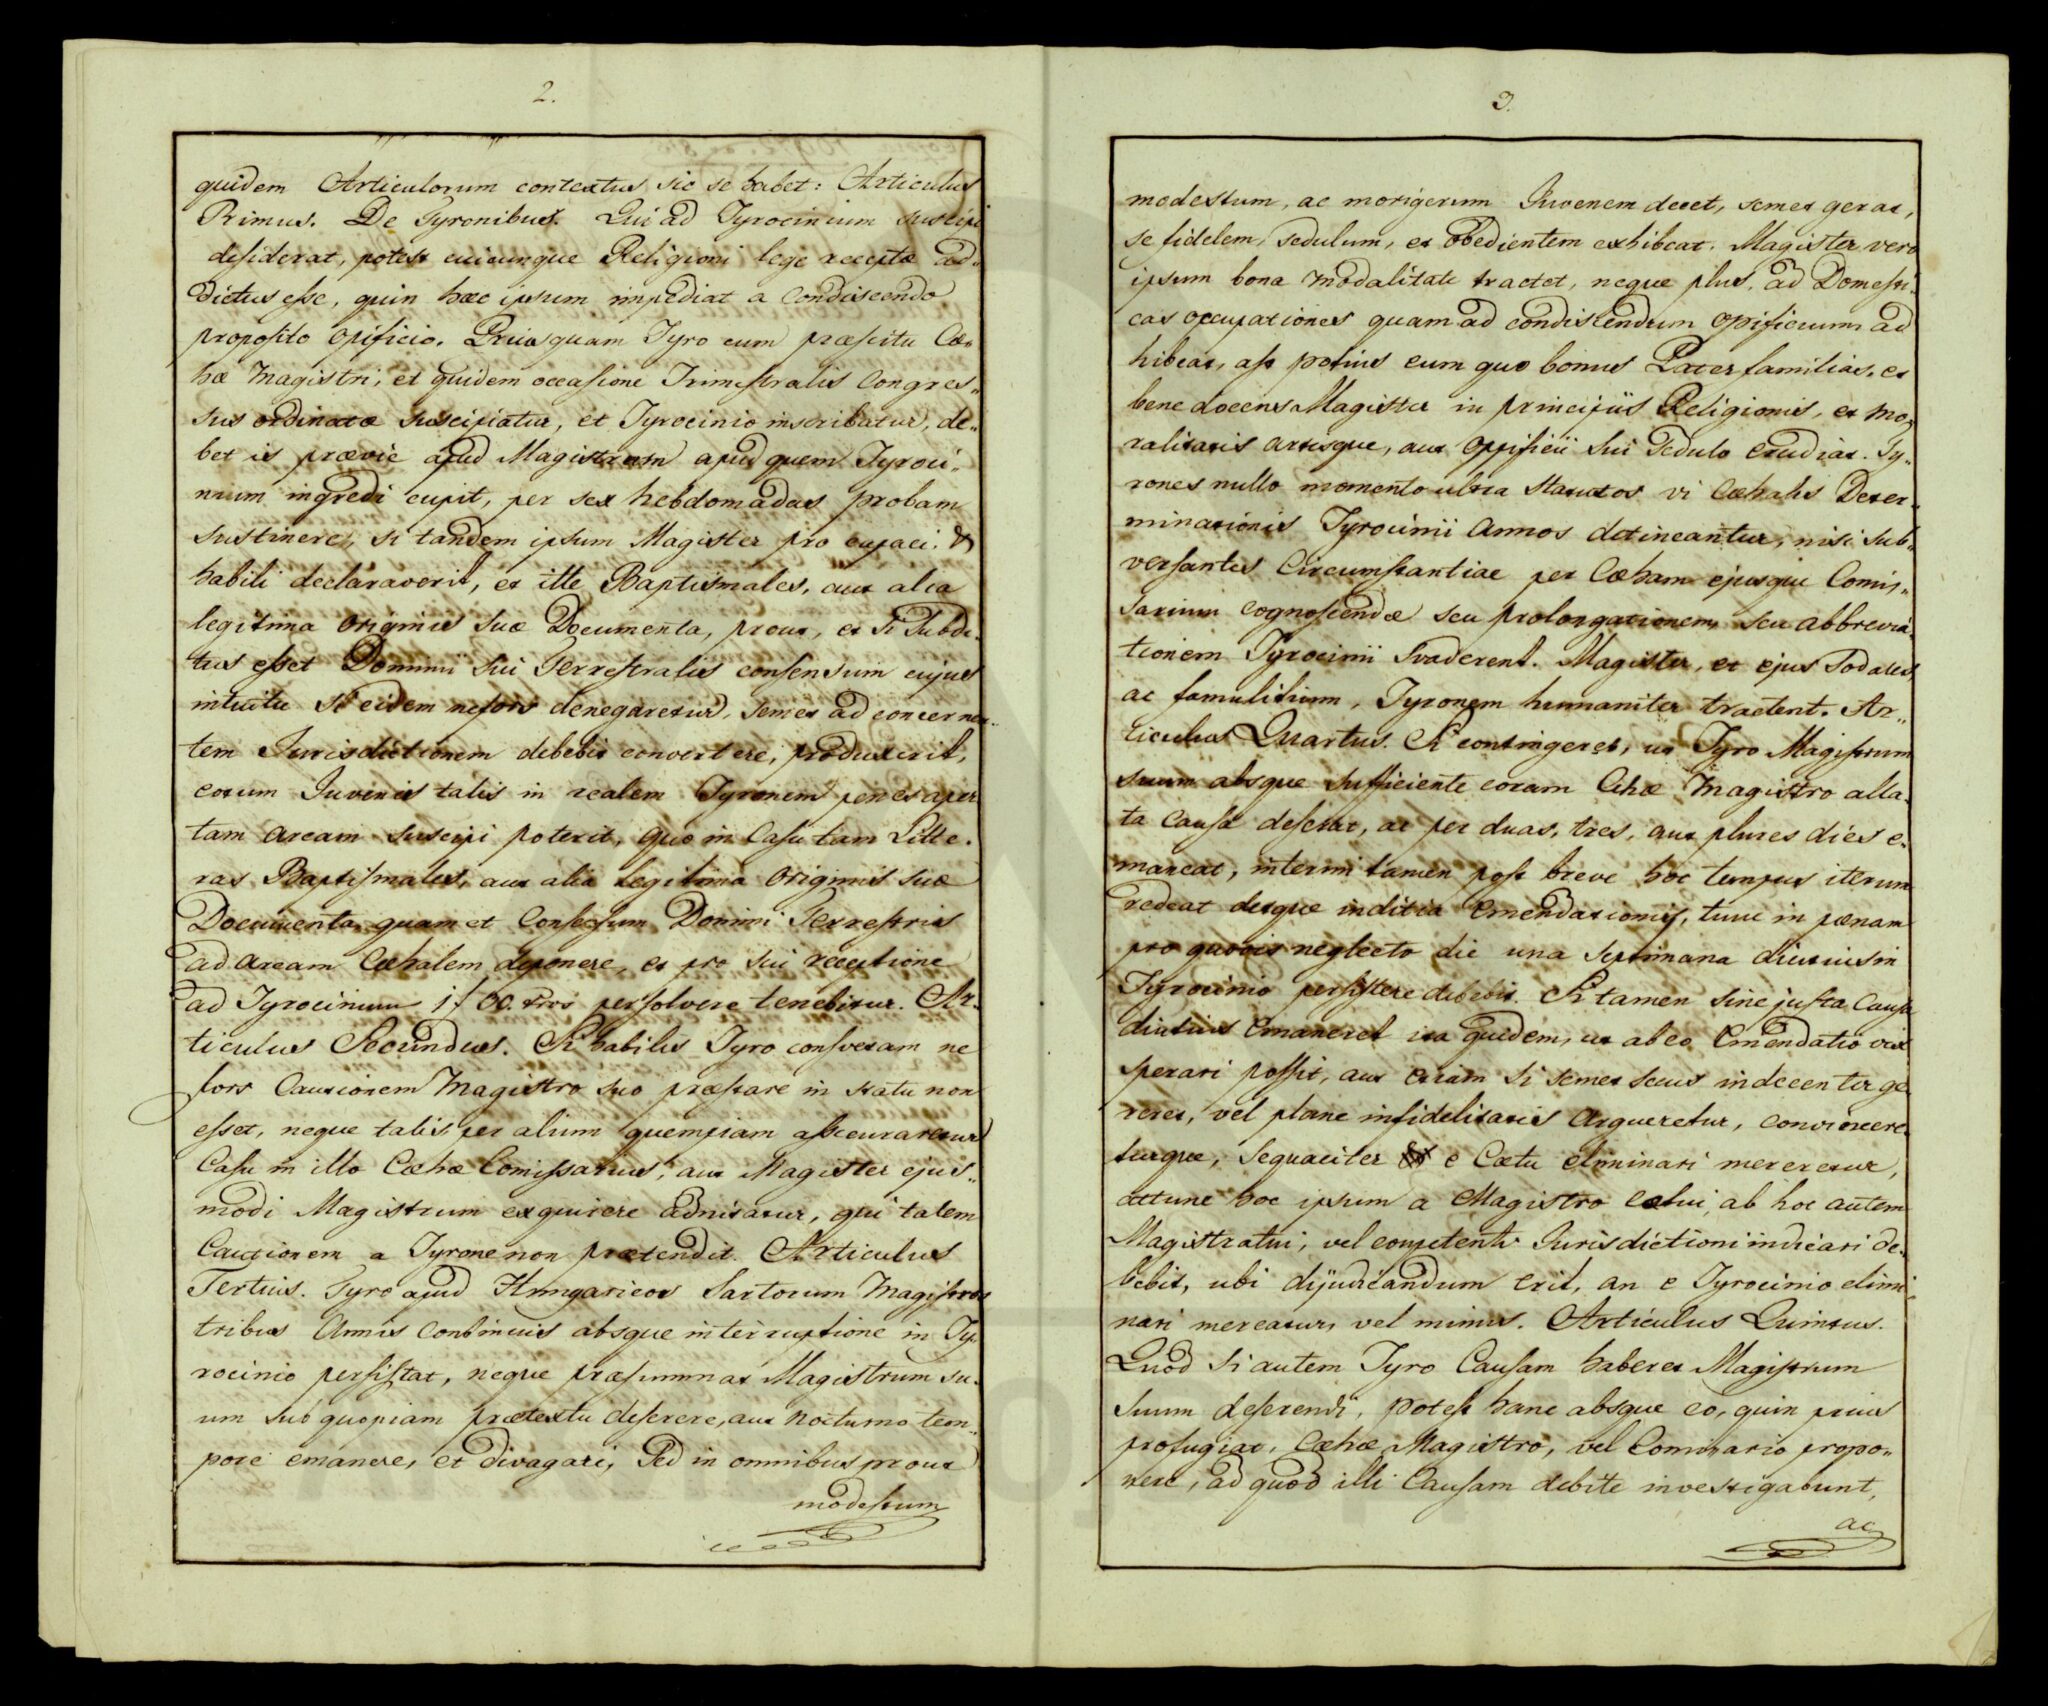 2.
quidem Articulorum contextus sic se habet: Articulus
Primus. De Tyronibus. Qui ad Tyrocinium suscipi
desiderat, potest cuicunque Religioni lege receptæ ad„
dictus esse, quin hæc ipsum impediat a condiscendo
proposito opificio. Priusquam Tyro cum præscitu Cæ„
hæ Magistri, et quidem occasione Trimestralis Congres„
sus ordinatæ suscipiatur, et Tyrocinio inscribatur, de„
bet is prævie apud Magistrum apud quem Tyroci„
nium ingredi cupit, per sex hebdomadas probam
sustinere, si tandem ipsum Magister pro capaci, &
habili declaraverit, et ille Baptismales, aut alia
legitima Originis suæ Documenta, prout, et si Subdi„
tus esset Dominii sui Terrestralis consensum cujus
intuitu si eidem nefors denegaretur, semet ad concernen„
tem Jurisdictionem debebit convertere, produxerit,
eorum Juvenis talis in realem Tyronem penes aper
tam arcam suscipi poterit, quo in Casu tam Litte„
ras Baptismales, aut alia legitima Originis suæ
Documenta, quam et Consensum Domini Terrestris
ad arcam Cæhalem deponere, et pro sui receptione
ad Tyrocinium 1 f 30. xros persolvere tenebitur. Ar„
ticulus Secundus. Si habilis Tyro consvetam ne
fors Cautionem Magistro suo præstare in statu non
esset, neque talis per alium quempiam assecuraretur
Casu in illo Cæhæ Comissarius, aut Magister ejus„
modi Magistrum exquirere adnitatur, qui talem
Cautionem a Tyrone non prætendit. Articulus
Tertius. Tyro apud Hungaricos Sartorum Magistros
tribus Annis continuis absque interruptione in Ty„
rocinio persistat, neque præsummat Magistrum su„
um sub quopiam prætextu deserere, aut nocturno tem„
pore emanere, et divagari, Sed in omnibus prout
modestum
3.
modestum, ac morigerum Juvenem decet, semet gerat,
se fidelem, sedulum, et obedientem exhibeat. Magister vero
ipsum bona modalitate tractet, neque plus, ad Domesti„
cas occupationes quam ad condiscendum opificium ad
hibeat, ast potius eum quo bonus Pater familias, et
bene docens Magister in principiis Religionis, et mo„
ralitatis artisque, aut opificii sui sedulo erudiat. Ty„
rones nullo momento ultra statutos vi Cæhalis Deter„
minationis Tyrocinii annos detineantur, nisi sub„
versantes Circumstantiae per Cæham ejusque Comis„
sarium cognoscendæ seu prolongationem, seu abbrevia„
tionem Tyrocinii svaderent. Magister, et ejus Sodales,
ac famulitium, Tyronem humaniter tractent. Ar„
ticulus Quartus. Si contingeret, ut Tyro Magistrum
suum absque sufficiente coram Cehæ Magistro alla„
ta causa deserat, ac per duas, tres, aut plures dies e„
maneat, interim tamen post breve hoc tempus iterum
redeat detque inditia emendationis, tunc in pœnam
pro quovis neglecto die una septimana diutius in
Tyrocinio persistere debebit. Si tamen sine justa Causa
diutius emaneret ita quidem, ut ab eo Emendatio vix
sperari possit, aut etiam si semet secus indecenter ge„
reret, vel plane infidelitatis argueretur, convincere„
turque, sequaciter e Cœtu eliminari mereretur,
attunc hoc ipsum a Magistro Cœtui, ab hoc autem
Magistratui, vel competenti Jurisdictioni indicari de„
bebit, ubi dijudicandum erit, an e Tyrocinio elimi„
nari mereatur, vel minus. Articulus Quintus.
Quod si autem Tyro Causam haberet Magistrum
suum deserendi, potest hanc absque eo, quin prius
profugiat, Cæhæ Magistro, vel Comissario propo„
nere, ad quod illi Causam debite investigabunt,
ac